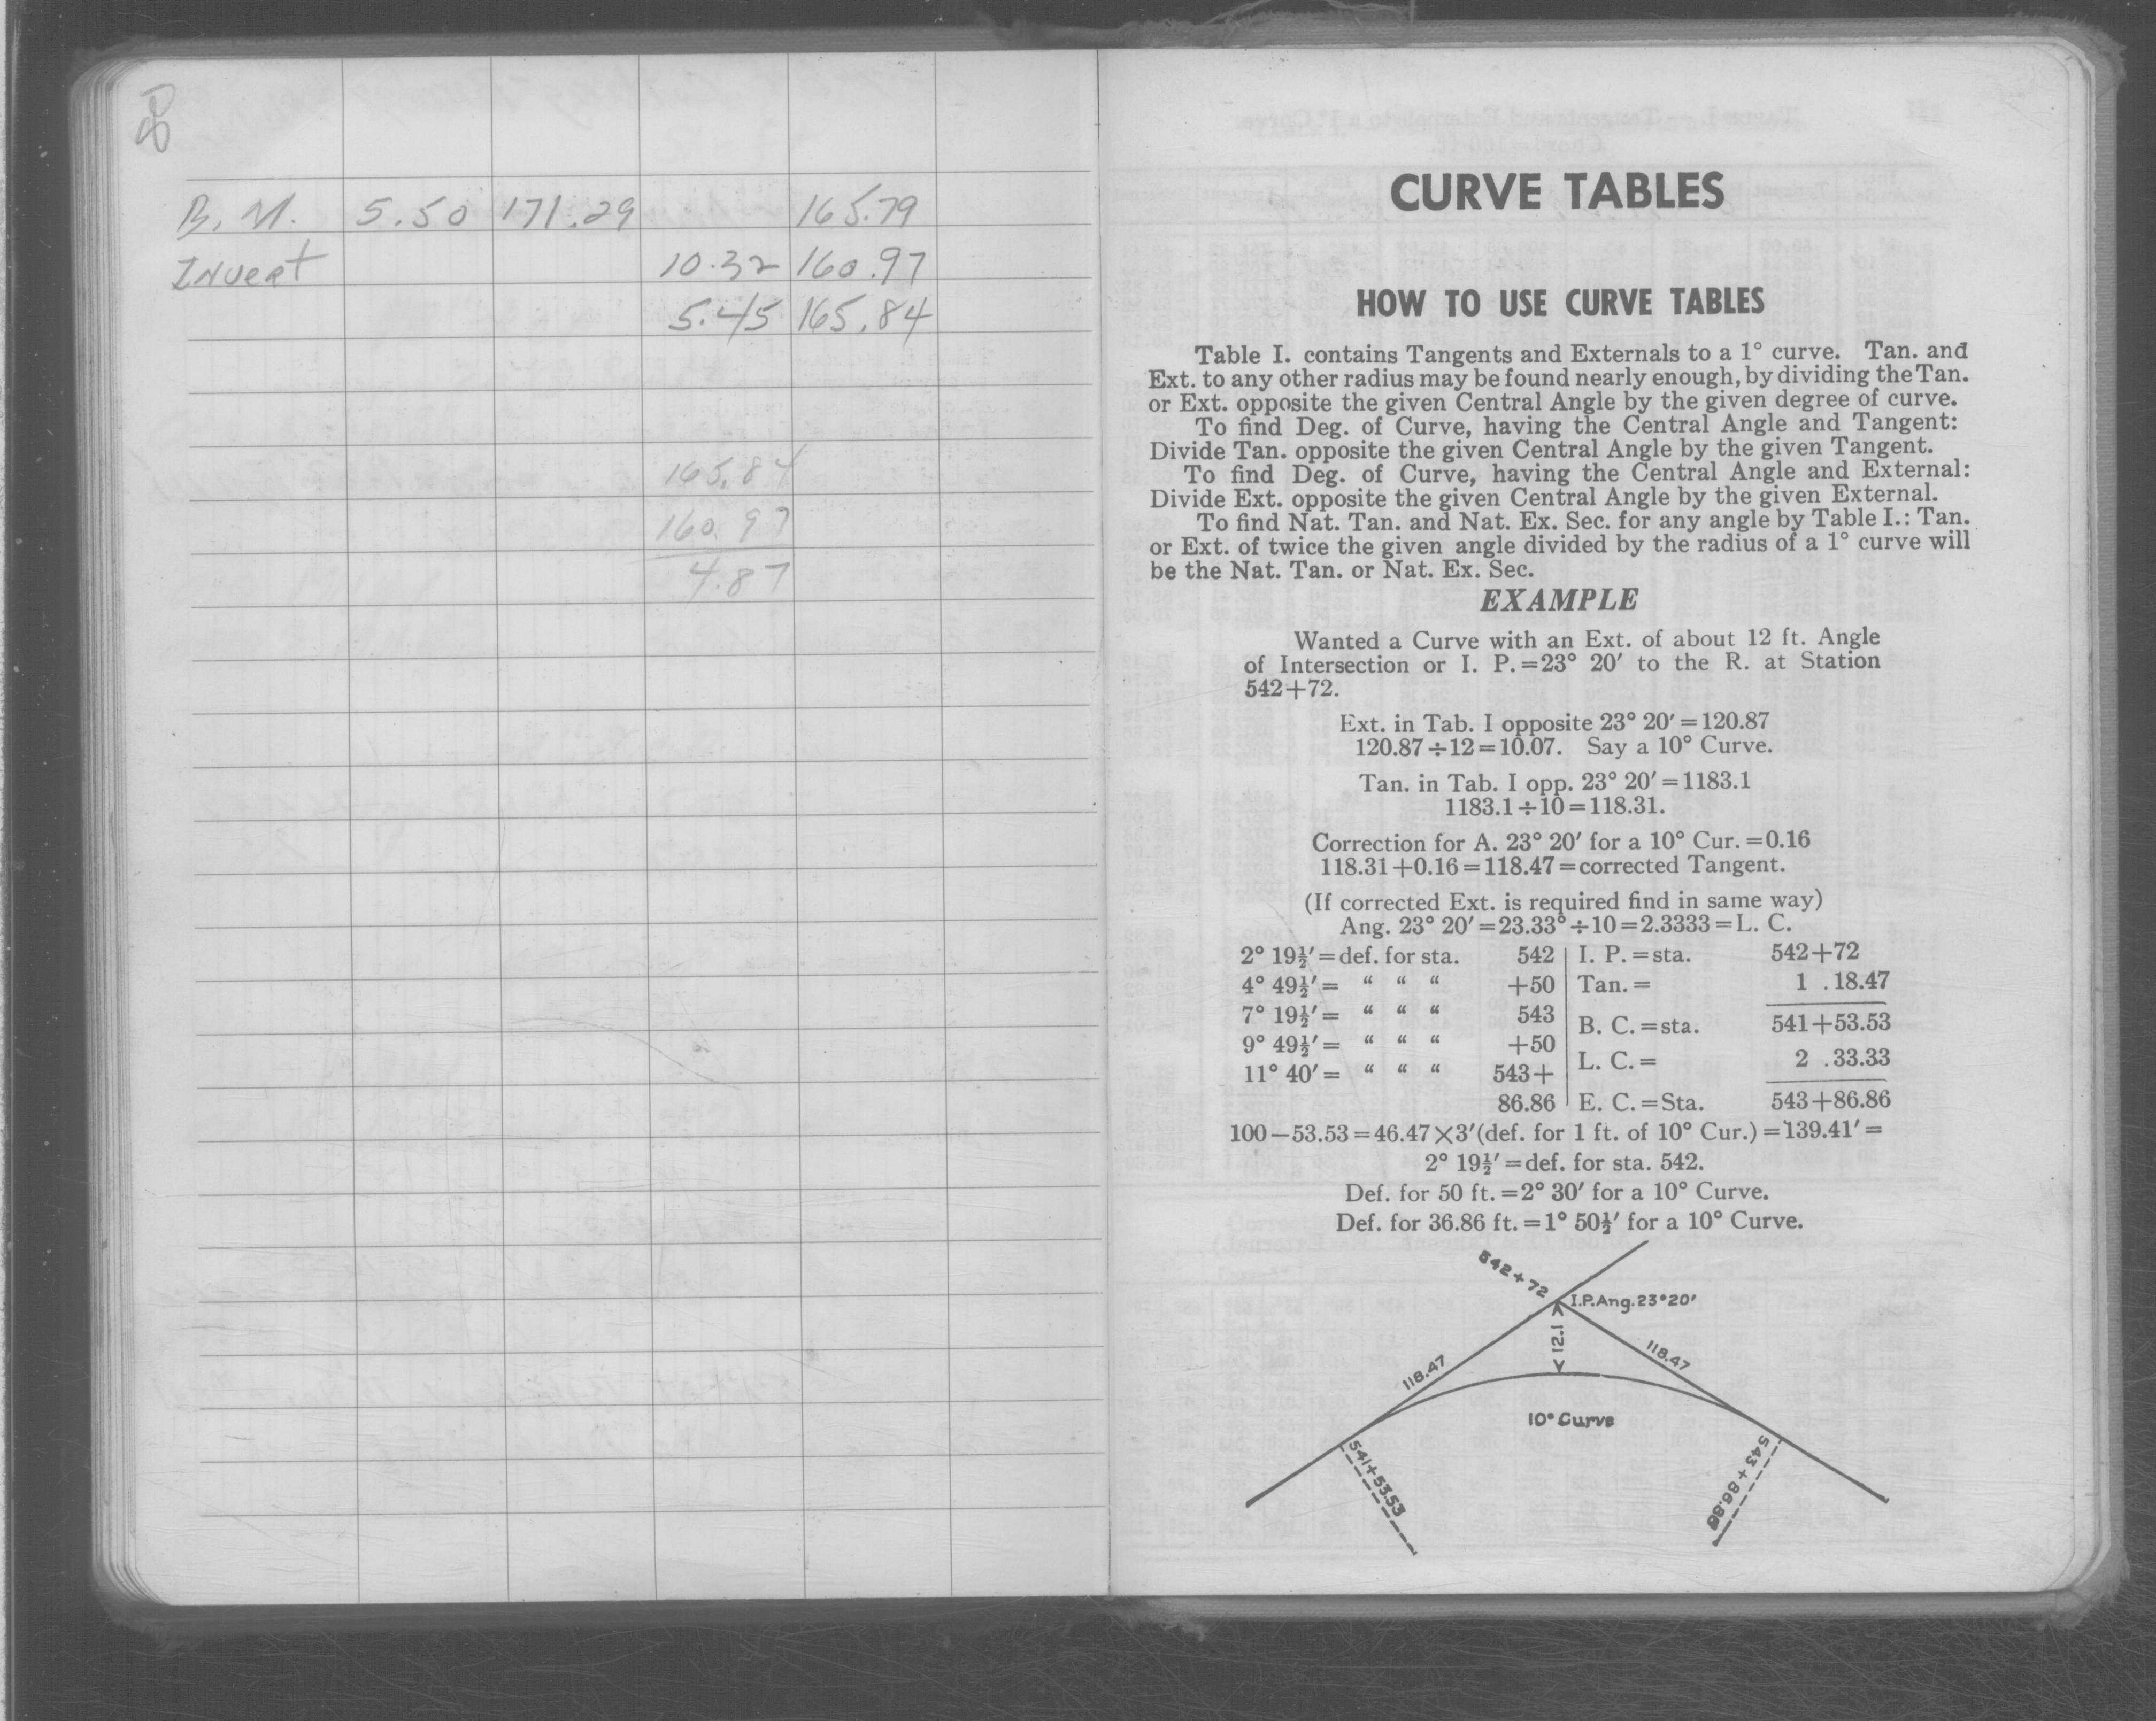 B.M. 5.50 171.29 165.79
Invert 10.32 160.97
5.45 165.84
165.84
160.97
4.87
CURVE TABLES
HOW TO USE CURVE TABLES
Table I. contains Tangents and Externals to a 1° curve. Tan. and
Ext. to any other radius may be found nearly enough, by dividing the Tan.
or Ext. opposite the given Central Angle by the given degree of curve.
To find Deg. of Curve, having the Central Angle and Tangent:
Divide Tan. opposite the given Central Angle by the given Tangent.
To find Deg. of Curve, having the Central Angle and External:
Divide Ext. opposite the given Central Angle by the given External.
To find Nat. Tan. and Nat. Ex. Sec. for any angle by Table I.: Tan.
or Ext. of twice the given angle divided by the radius of a 1° curve will
be the Nat. Tan. or Nat. Ex. Sec.
EXAMPLE
Wanted a Curve with an Ext. of about 12 ft. Angle
of Intersection or I. P.=23° 20′ to the R. at Station
542+72.
Ext. in Tab. I opposite 23° 20′=120.87
120.87÷12=10.07. Say a 10° Curve.
Tan. in Tab. I opp. 23° 20′=1183.1
1183.1÷10=118.31.
Correction for A. 23° 20′ for a 10° Cur.=0.16
118.31+0.16=118.47=corrected Tangent.
(If corrected Ext. is required find in same way)
Ang. 23° 20′=23.33°÷10=2.3333=L. C.
2° 19½′=def. for sta. 542 I. P.=sta. 542+72
4° 49½′= “ “ “ +50 Tan.= 1 .18.47
7° 19½′= “ “ “ 543 B. C.=sta. 541+53.53
9° 49½′= “ “ “ +50 L. C.= 2 .33.33
11° 40′= “ “ “ 543+
86.86 E. C.=Sta. 543+86.86
100−53.53=46.47×3′(def. for 1 ft. of 10° Cur.)=139.41′=
2° 19½′=def. for sta. 542.
Def. for 50 ft.=2° 30′ for a 10° Curve.
Def. for 36.86 ft.=1° 50½′ for a 10° Curve.
542+72
I.P.Ang.23°20′
12.1
118.47
118.47
10° Curve
541+53.53
543+86.86